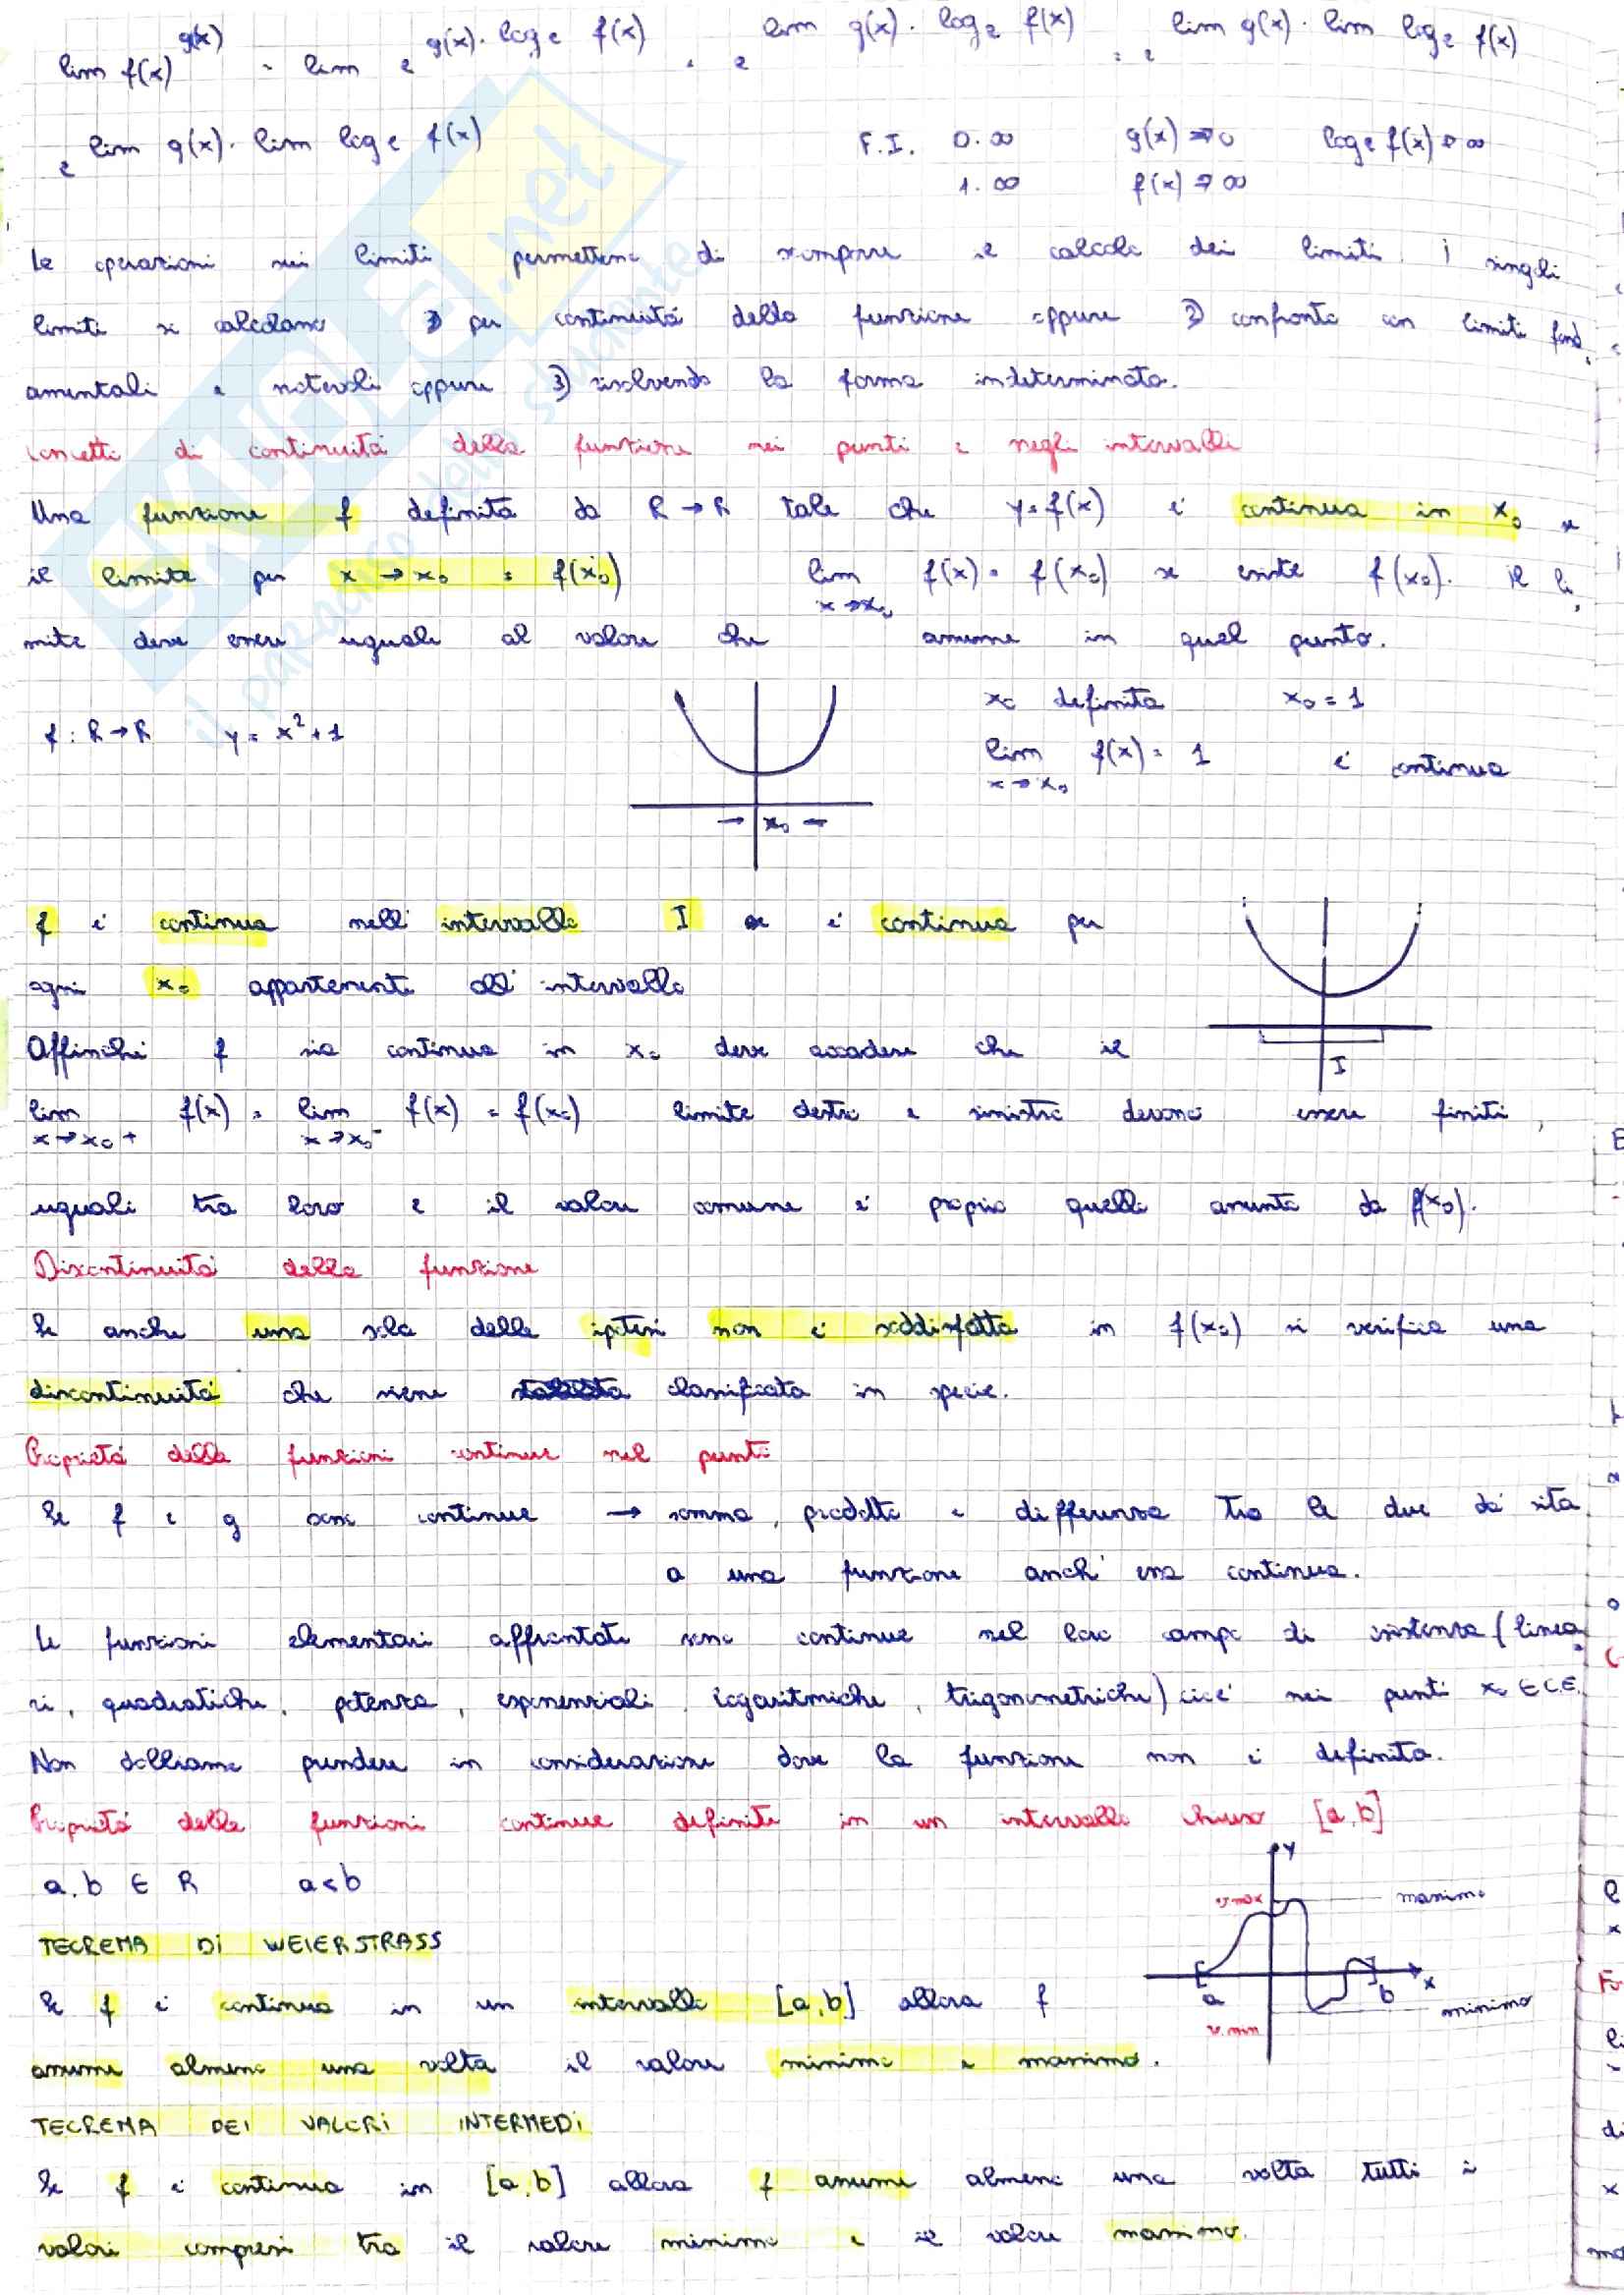 lim f(x)^g(x) = lim e^g(x)·log e f(x) = e^lim g(x)·log e f(x) = e^lim g(x)·lim log e f(x)
e^lim g(x)·lim log e f(x) F.I. 0·∞ g(x)→0 log e f(x)→∞
1·∞ f(x)→∞
Le operazioni sui limiti permettono di scomporre il calcolo dei limiti. I singoli
limiti si calcolano 1) per continuità della funzione oppure 2) confronto con limiti fond
amentali e notevoli oppure 3) risolvendo la forma indeterminata.
Concetto di continuità della funzione nei punti e negli intervalli
Una funzione f definita da R→R tale che y=f(x) è continua in x0 se
il limite per x→x0 = f(x0) lim x→x0 f(x) = f(x0) se esiste f(x0). il li
mite deve essere uguale al valore che assume in quel punto.
f: R→R y = x²+1 x0 definita x0=1
lim x→x0 f(x) = 1 è continua
→ x0 ←
f è continua nell'intervallo I se è continua per
ogni x0 appartenente all'intervallo
I
Affinché f sia continua in x0 deve accadere che il
lim x→x0+ f(x) = lim x→x0- f(x) = f(x0) limite destro e sinistro devono essere finiti,
uguali tra loro e il valore comune è proprio quello assunto da f(x0).
Discontinuità della funzione
Se anche una sola delle ipotesi non è soddisfatta in f(x0) si verifica una
discontinuità che viene classificata in specie.
Proprietà delle funzioni continue nel punto
Se f e g sono continue → somma, prodotto e differenza tra le due dà vita
a una funzione anch'essa continua.
Le funzioni elementari affrontate sono continue nel loro campo di esistenza (linea
ri, quadratiche, potenza, esponenziali, logaritmiche, trigonometriche) cioè nei punti x0 ∈ C.E.
Non dobbiamo prendere in considerazione dove la funzione non è definita.
Proprietà delle funzioni continue definite in un intervallo chiuso [a,b]
a,b ∈ R a<b
y
v.max massimo
TEOREMA Di WEIERSTRASS
a b x
minimo
v.min
Se f è continua in un intervallo [a,b] allora f
assume almeno una volta il valore minimo e massimo.
TEOREMA DEI VALORI INTERMEDI
Se f è continua in [a,b] allora f assume almeno una volta tutti i
valori compresi tra il valore minimo e il valore massimo.